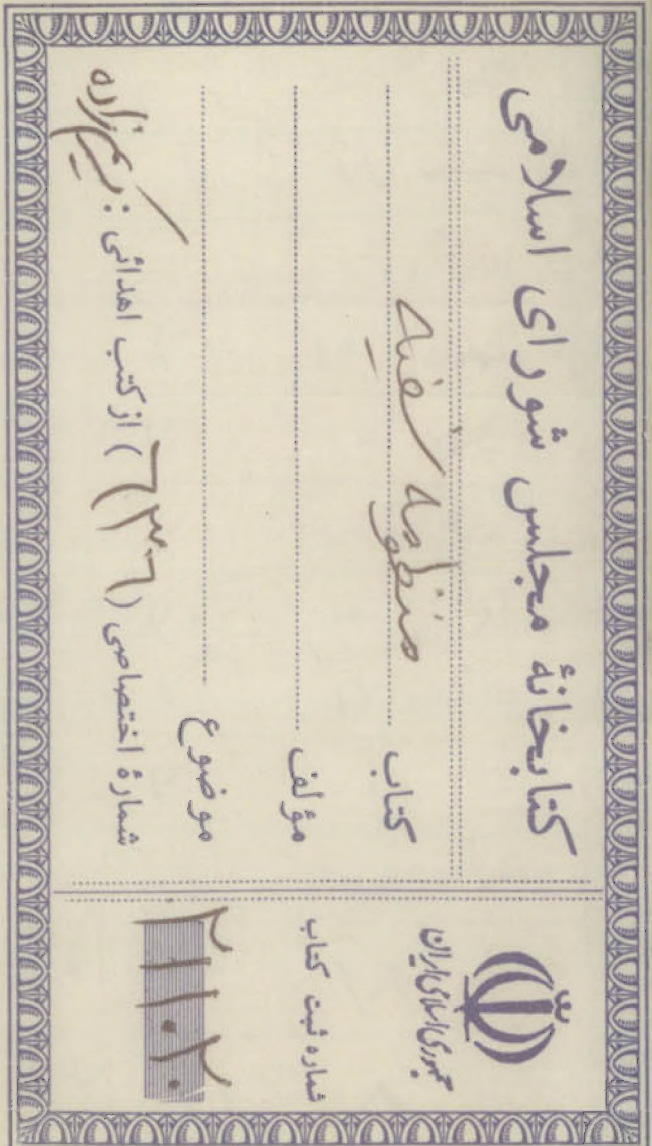 کتابخانهٔ مجلس شورای اسلامی
کتاب منظومه فقهیه
مؤلف
موضوع
شمارهٔ اختصاصی (٦٣٦) از کتب اهدائی: کریم‌زاده
جمهوری اسلامی ایران
شماره ثبت کتاب
٢١١٠٢